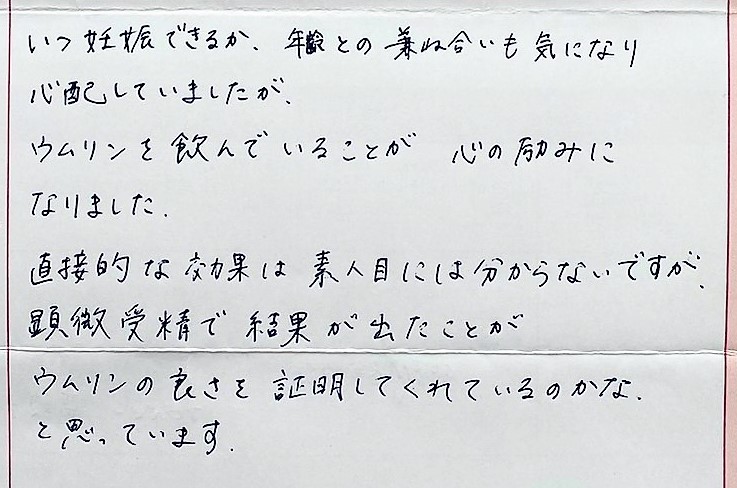 いつ妊娠できるか、年齢との兼ね合いも気になり
心配していましたが、
ウムリンを飲んでいることが 心の励みに
なりました.
直接的な効果は素人目には分からないですが、
顕微受精で結果が出たことが
ウムリンの良さを証明してくれているのかな、
と思っています.